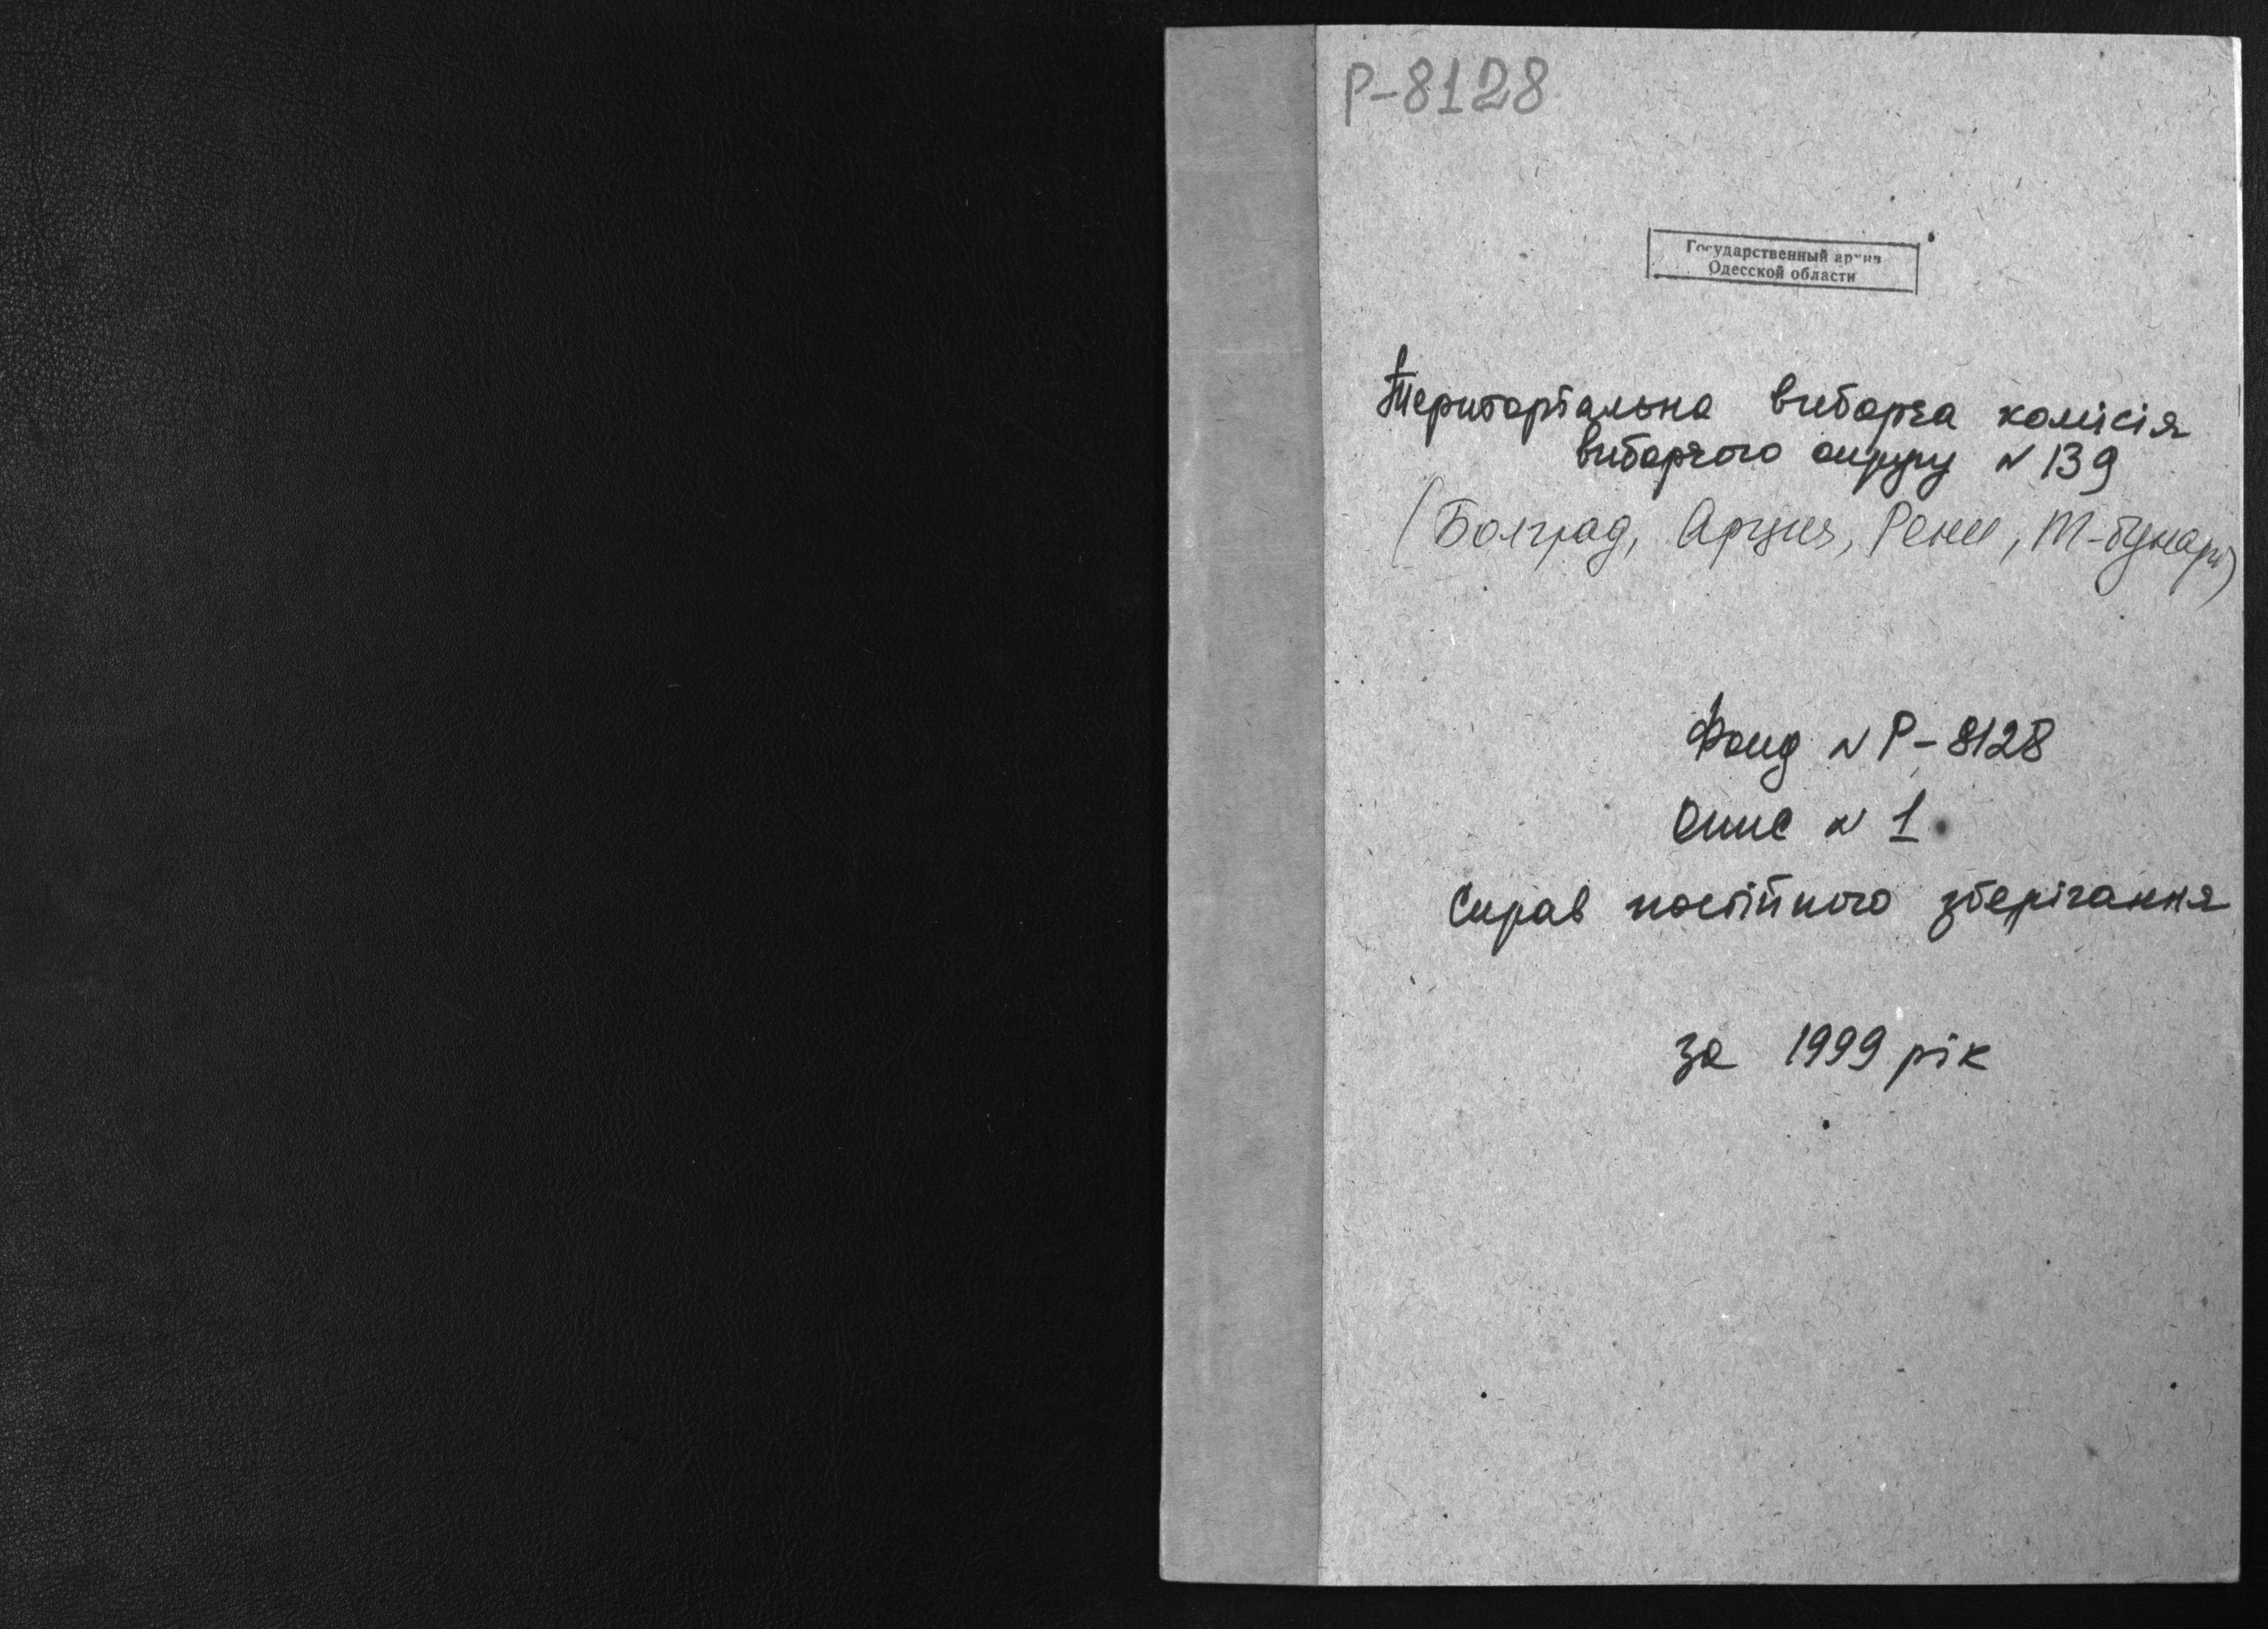 Р-8128
Государственный архив
Одесской области
Територіальна виборча комісія
виборчого округу N 139
(Болград, Арциз, Рени, Т-бунари)
Фонд N Р-8128
Опис N 1
Справ постійного зберігання
за 1999 рік